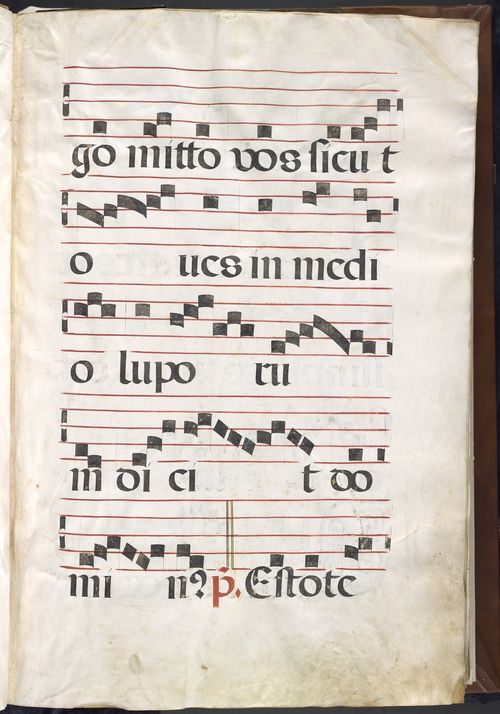 go mitto vos sicut
o ues in medi
o lupo ru
m di ci t do
mi nꝰ ꝓ. Estote